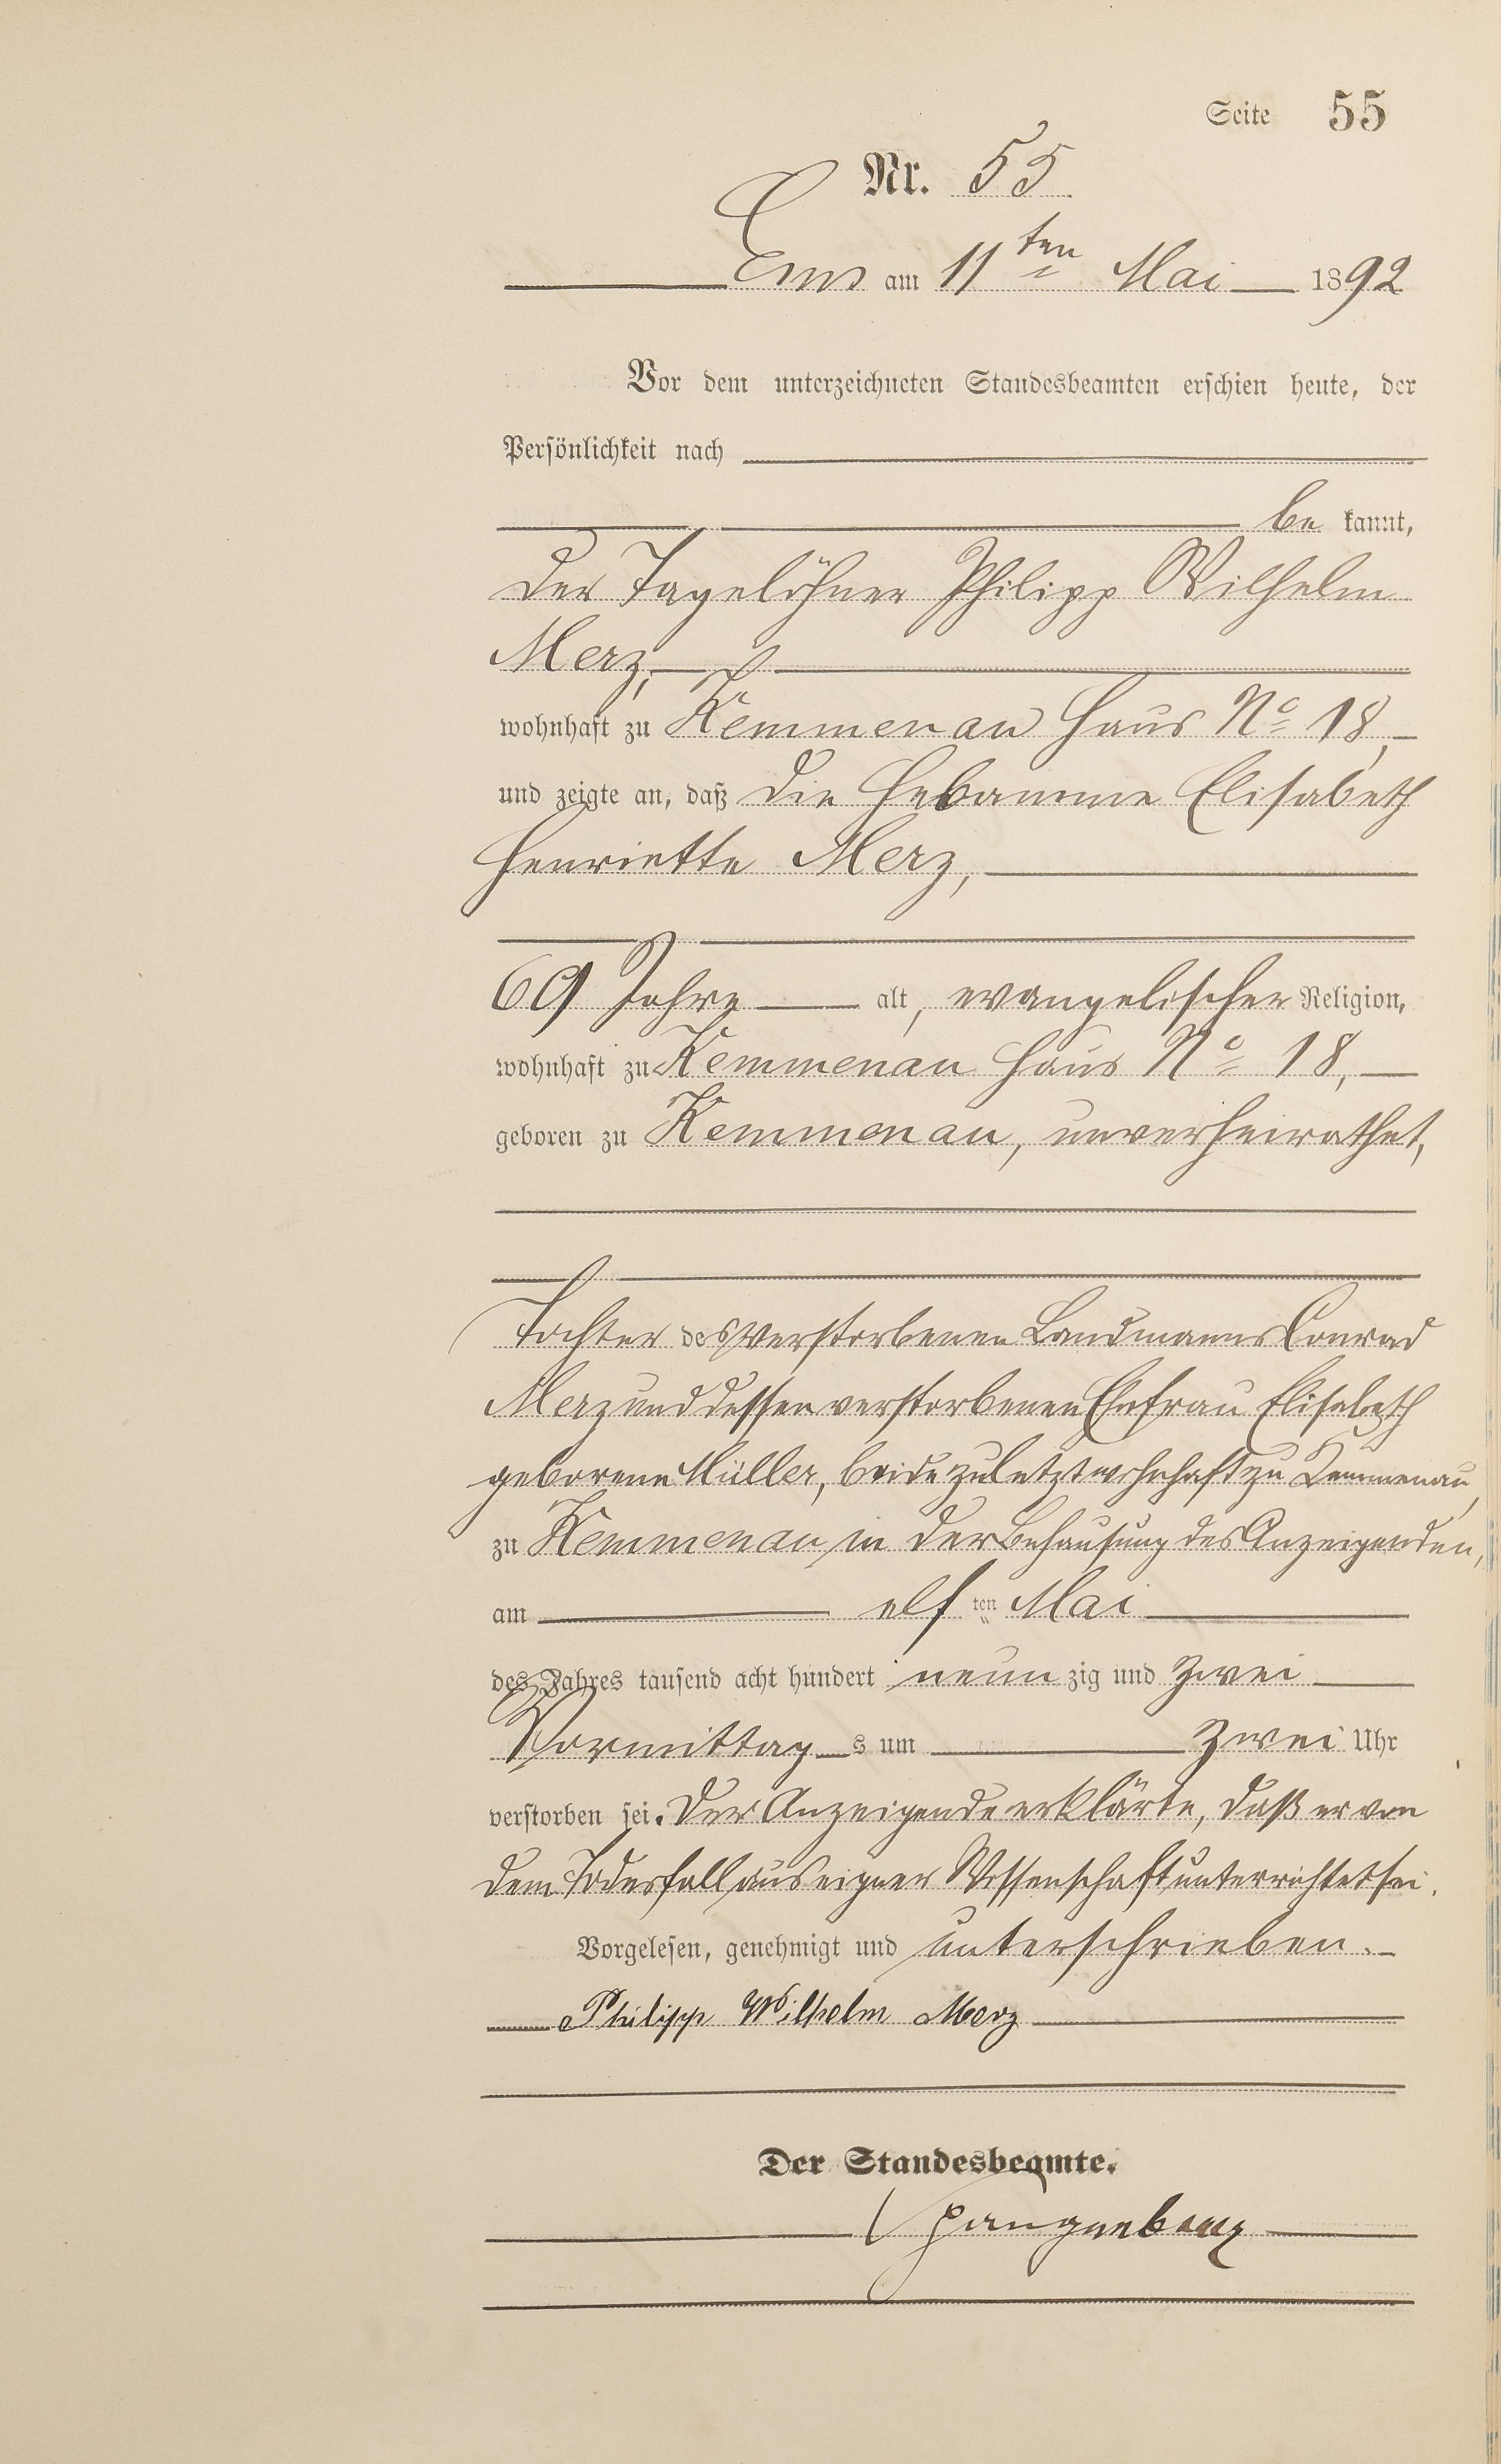 Seite 55
Nr. 55
Ems am 11ten Mai 1892
Vor dem unterzeichneten Standesbeamten erschien heute, der
Persönlichkeit nach
be kannt,
der Tagelöhner Philipp Wilhelm
Merz,
wohnhaft zu Kemmenau Haus No 18,
und zeigte an, daß die Hebamme Elisabeth
Henriette Merz,
69 Jahre alt, evangelischer Religion,
wohnhaft zu Kemmenau Haus No 18,
geboren zu Kemmenau, unverheirathet,
Tochter des verstorbenen Landmanns Conrad
Merz und dessen verstorbenen Ehefrau Elisabeth
geborene Müller, beide zuletzt wohnhaft zu Kemmenau,
zu Kemmenau in der Behausung des Anzeigenden,
am elf ten Mai
des Jahres tausend acht hundert neun zig und zwei
Vormittag s um zwei Uhr
verstorben sei. Der Anzeigende erklärte, daß er von
dem Todesfall aus eigner Wissenschaft unterrichtet sei.
Vorgelesen, genehmigt und unterschrieben.
Philipp Wilhelm Merz
Der Standesbeamte.